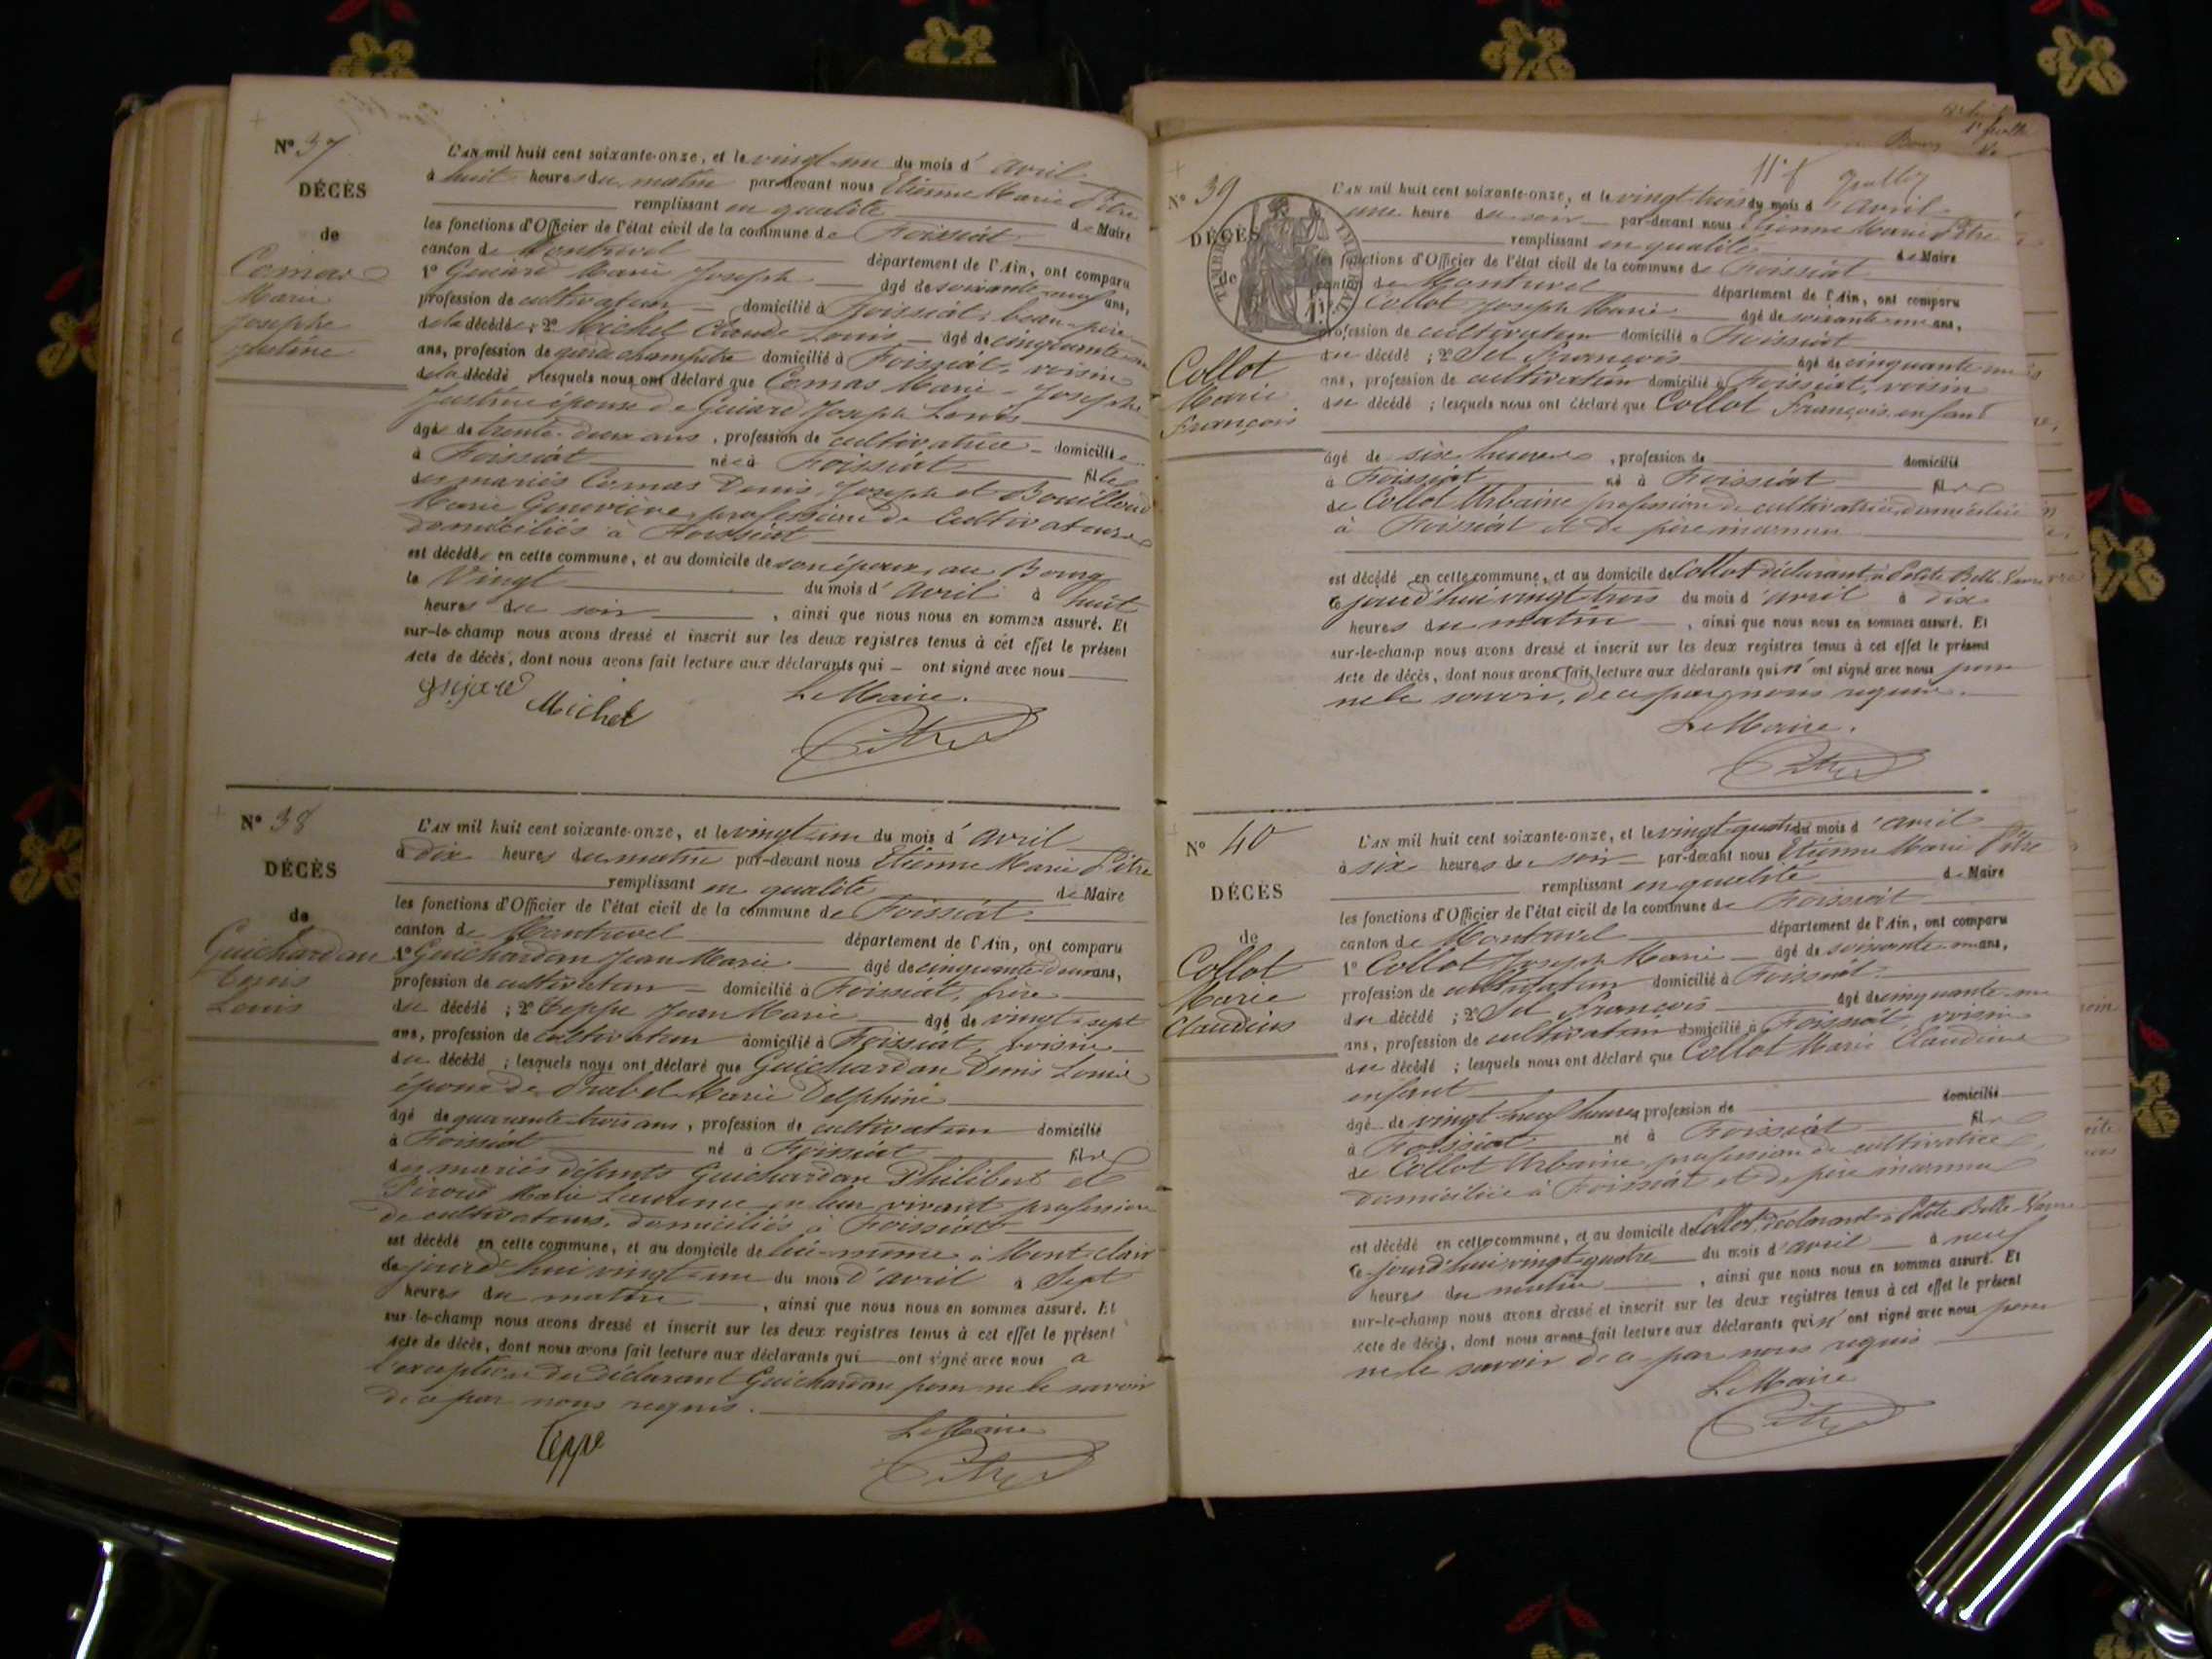 N° 37
DÉCÈS
de
Comas
Marie
Josephe
Justine
L'AN mil huit cent soixante-onze, et le vingt-un du mois d'avril
à huit heures du matin par-devant nous Etienne Marie Pitre
remplissant en qualité de Maire
les fonctions d'Officier de l'état civil de la commune de Foissiat
canton de Montrevel département de l'Ain, ont comparu
1° Guiard Marie Joseph âgé de soixante-neuf ans,
profession de cultivateur domicilié à Foissiat, beau-père
de la décédé ; 2° Michel Claude Louis âgé de cinquante
ans, profession de garde champêtre domicilié à Foissiat, voisin
de la décédé lesquels nous ont déclaré que Comas Marie-Josephe
Justine épouse de Guiard Joseph Louis
âgée de trente-deux ans, profession de cultivatrice domiciliée
à Foissiat née à Foissiat fille
des mariés Comas Denis Joseph et Bouilloud
Marie Geneviève, profession de cultivateurs
domiciliés à Foissiat
est décédée en cette commune, et au domicile de son époux, au Bourg
le Vingt du mois d'avril à huit
heures du soir, ainsi que nous nous en sommes assuré. Et
sur-le-champ nous avons dressé et inscrit sur les deux registres tenus à cet effet le présent
Acte de décès, dont nous avons fait lecture aux déclarants qui ont signé avec nous
Michel
Le Maire.
Pitre
N° 38
DÉCÈS
de
Guichardan
Denis
Louis
L'AN mil huit cent soixante-onze, et le vingt-un du mois d'avril
à dix heures du matin par-devant nous Etienne Marie Pitre
remplissant en qualité de Maire
les fonctions d'Officier de l'état civil de la commune de Foissiat
canton de Montrevel département de l'Ain, ont comparu
1° Guichardan Jean Marie âgé de cinquante-deux ans,
profession de cultivateur domicilié à Foissiat, frère
du décédé ; 2° Teppe Jean Marie âgé de vingt-sept
ans, profession de cultivateur domicilié à Foissiat, voisin
du décédé ; lesquels nous ont déclaré que Guichardan Denis Louis
époux de Marie Delphine
âgé de quarante-trois ans, profession de cultivateur domicilié
à Foissiat né à Foissiat fils
des mariés défunts Guichardan Philibert et
Piroud Marie Laurence en leur vivant profession
de cultivateurs, domiciliés à Foissiat
est décédé en cette commune, et au domicile de lui-même à Mont-clair
ce jourd'hui vingt-un du mois d'avril à Sept
heures du matin, ainsi que nous nous en sommes assuré. Et
sur-le-champ nous avons dressé et inscrit sur les deux registres tenus à cet effet le présent
Acte de décès, dont nous avons fait lecture aux déclarants qui ont signé avec nous à
l'exception du déclarant Guichardan pour ne le savoir
de ce par nous requis.
Teppe
Le Maire
Pitre
11e f
N° 39
TIMBRE IMPERIAL
DÉCÈS
de
Collot
Marie
François
L'AN mil huit cent soixante-onze, et le vingt-trois du mois d'avril
une heure du soir par-devant nous Etienne Marie Pitre
remplissant en qualité de Maire
les fonctions d'Officier de l'état civil de la commune de Foissiat
canton de Montrevel département de l'Ain, ont comparu
Collot Joseph Marie âgé de soixante-un ans,
profession de cultivateur domicilié à Foissiat
du décédé ; 2° Sel François âgé de cinquante-un
ans, profession de cultivateur domicilié à Foissiat, voisin
du décédé ; lesquels nous ont déclaré que Collot François, enfant
âgé de six heures, profession de domicilié
à Foissiat né à Foissiat fils
de Collot Urbaine profession de cultivatrice, domiciliée
à Foissiat et de père inconnu
est décédé en cette commune, et au domicile de Collot déclarant, à Petite Belle
ce jourd'hui vingt-trois du mois d'avril à dix
heures du matin, ainsi que nous nous en sommes assuré. Et
sur-le-champ nous avons dressé et inscrit sur les deux registres tenus à cet effet le présent
Acte de décès, dont nous avons fait lecture aux déclarants qui n'ont signé avec nous pour
ne le savoir, de ce par nous requis.
Le Maire.
Pitre
N° 40
DÉCÈS
de
Collot
Marie
Claudius
L'AN mil huit cent soixante-onze, et le vingt-quatre du mois d'avril
à six heures du soir par-devant nous Etienne Marie Pitre
remplissant en qualité de Maire
les fonctions d'Officier de l'état civil de la commune de Foissiat
canton de Montrevel département de l'Ain, ont comparu
1° Collot Joseph Marie âgé de soixante-un ans,
profession de cultivateur domicilié à Foissiat
du décédé ; 2° Sel François âgé de cinquante-un
ans, profession de cultivateur domicilié à Foissiat voisin
du décédé ; lesquels nous ont déclaré que Collot Marie Claudius
enfant
âgé de vingt-neuf heures profession de domicilié
à Foissiat né à Foissiat fils
de Collot Urbaine, profession de cultivatrice
domiciliée à Foissiat et de père inconnu
est décédé en cette commune, et au domicile de Collot, déclarant à Petite Belle
ce jourd'hui vingt-quatre du mois d'avril à neuf
heures du matin, ainsi que nous nous en sommes assuré. Et
sur-le-champ nous avons dressé et inscrit sur les deux registres tenus à cet effet le présent
Acte de décès, dont nous avons fait lecture aux déclarants qui n'ont signé avec nous pour
ne le savoir de ce par nous requis
Le Maire
Pitre